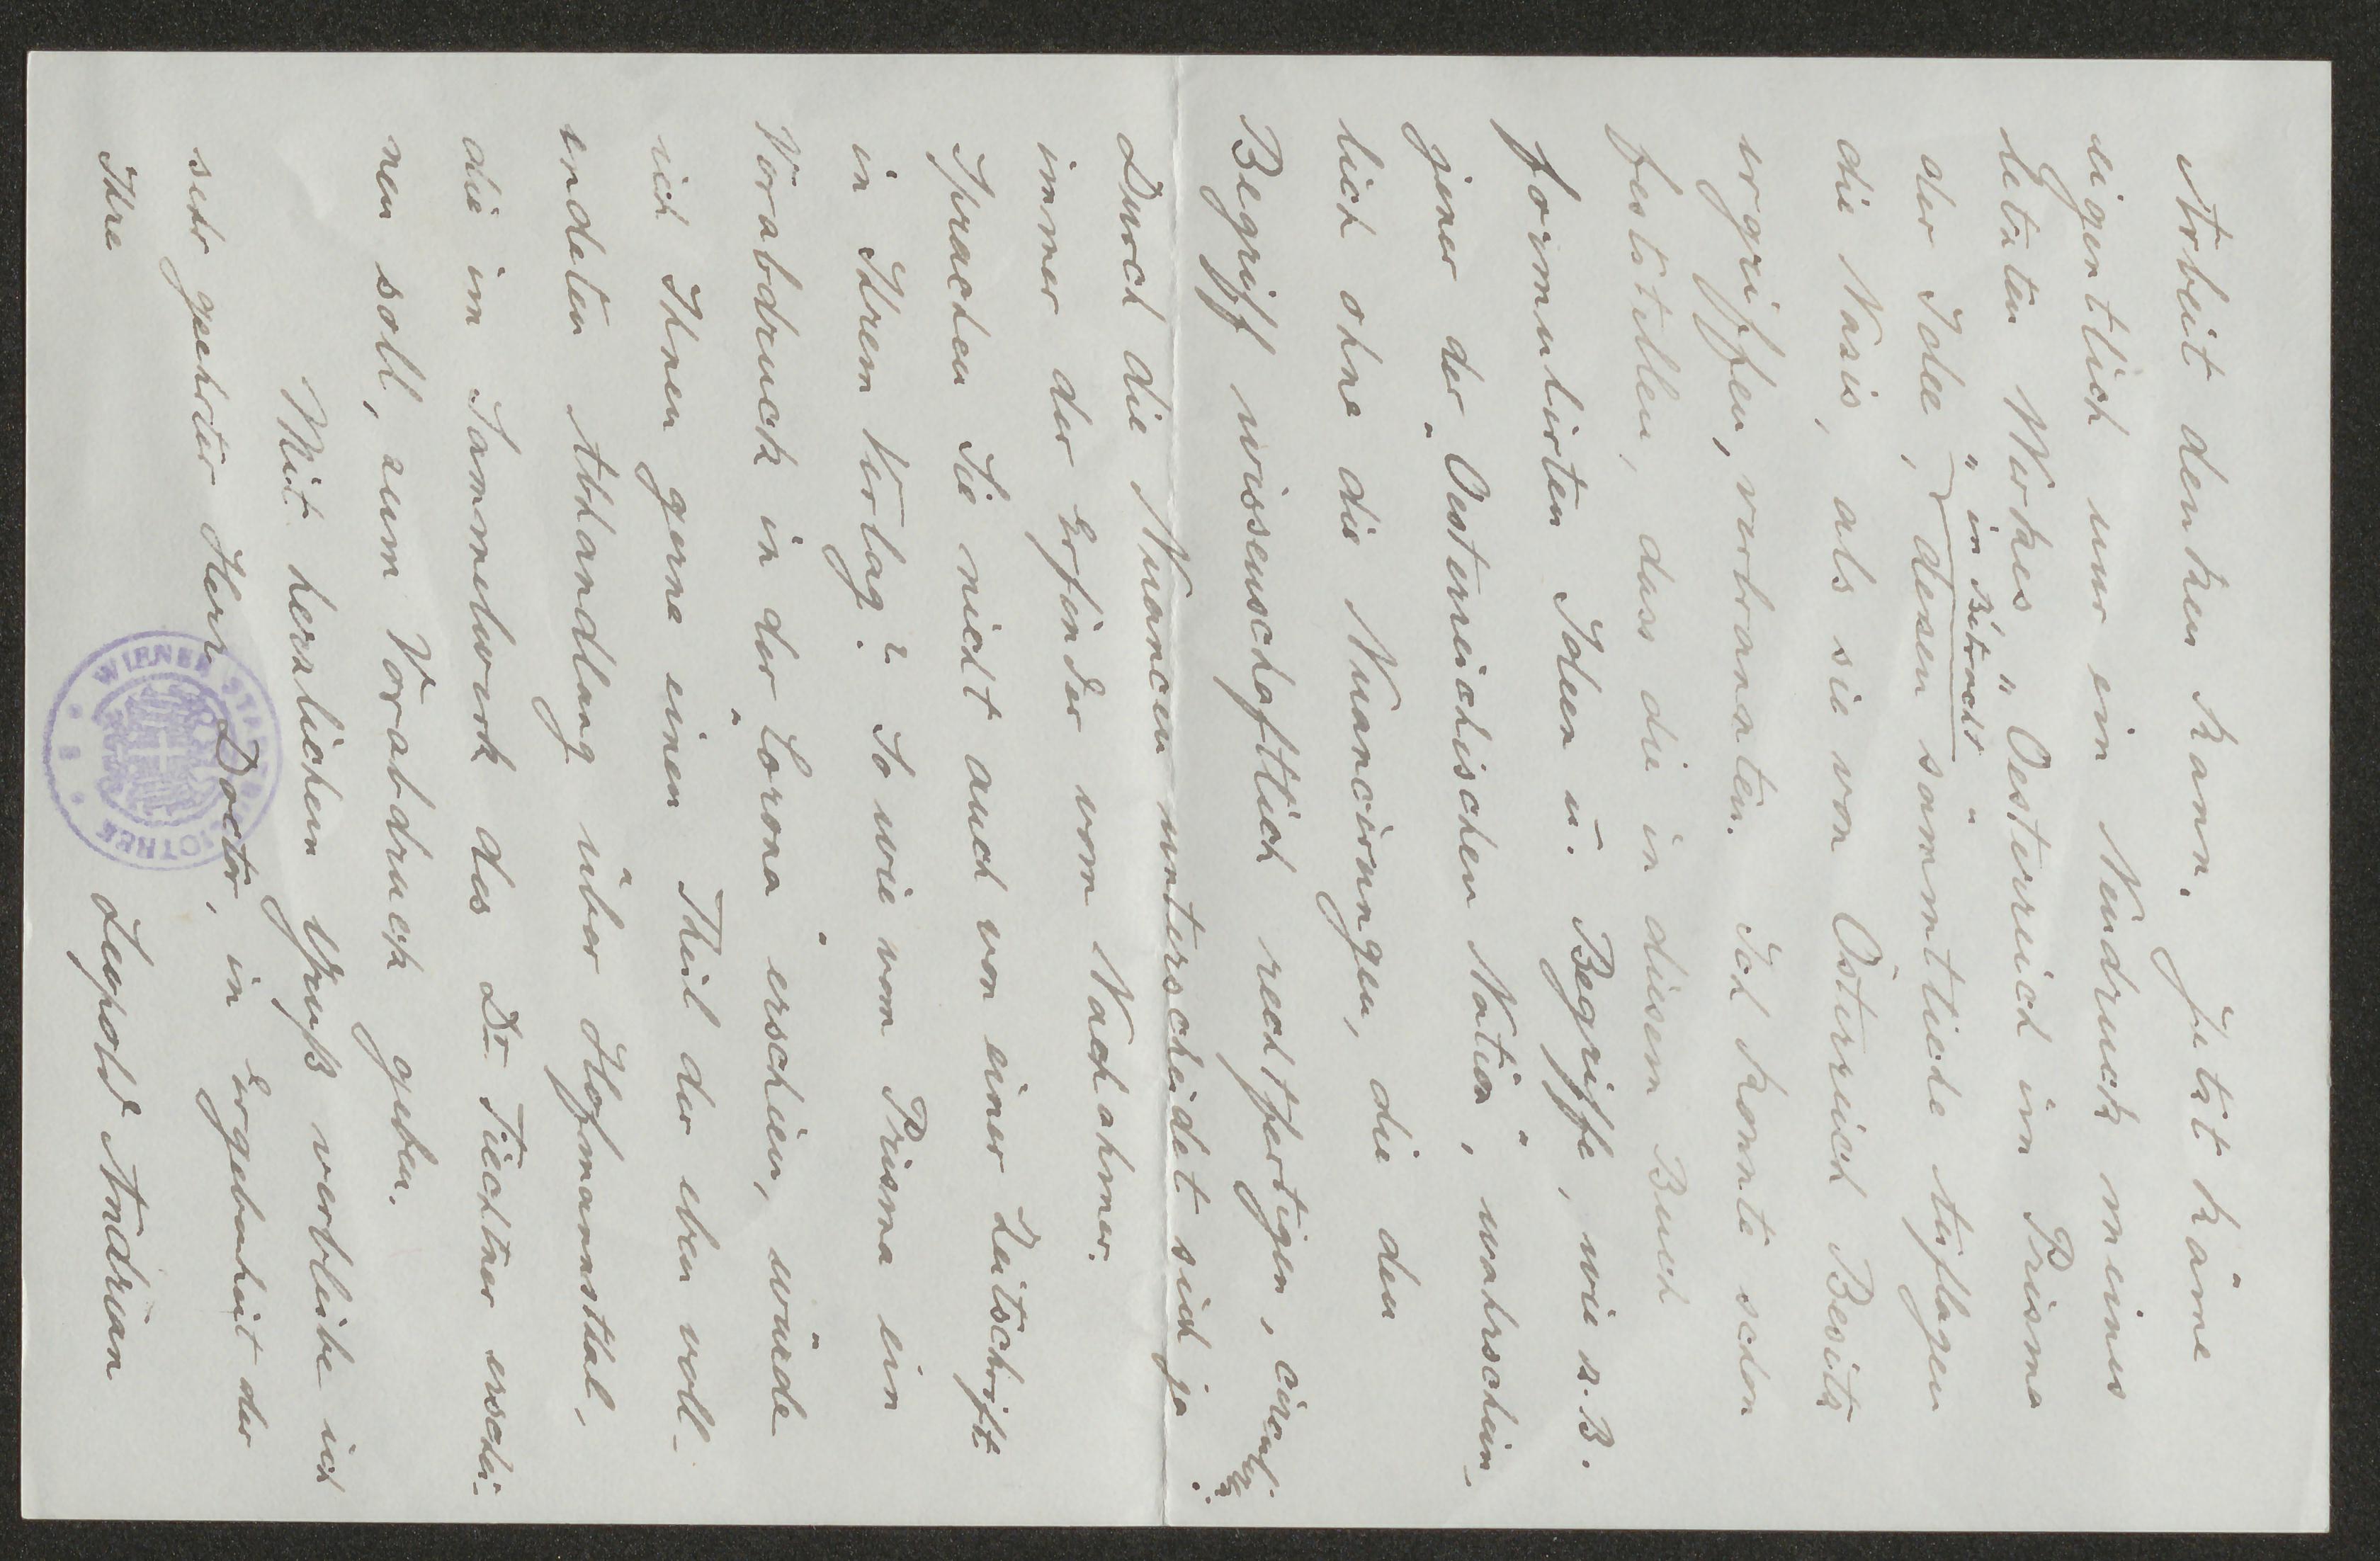 Arbeit denken kann. Jetzt käme
eigentlich nur ein Neudruck meines
letzten Werkes "Oesterreich im Prisma
"in Betracht"
der Idee, dessen sämmtliche Auflagen
die Nazis, als sie von Österreich Besitz
ergriffen, verbrannten. Ich konnte schon
feststellen, dass die in diesem Buch
formulirten Ideen u. Begriffe, wie z.B.
jener der "Oesterreichischen Nation", wahrschein-
lich ohne die Nuancirungen, die den
Begriff wissenschaftlich rechtfertigen, circuliren.
Durch die Nuancen unterscheidet sich ja
immer der Erfinder vom Nachahmer.
Sprachen Sie nicht auch von einer Zeitschrift
in Ihrem Verlag? So wie vom Prisma ein
Vorabdruck in der "Corona" erschien, würde
ich Ihnen gerne einen Theil der eben voll-
endeten Abhandlung über Hofmannsthal,
die im Sammelwerk des Dr Fiechtner erschei-
nen soll, zum Vorabdruck geben.
Mit herzlichem Gruß verbleibe ich
sehr geehrter Herr Doctor, in Ergebenheit der
Ihre
Leopold Andrian
WIENER STADTBIBLIOTHEK